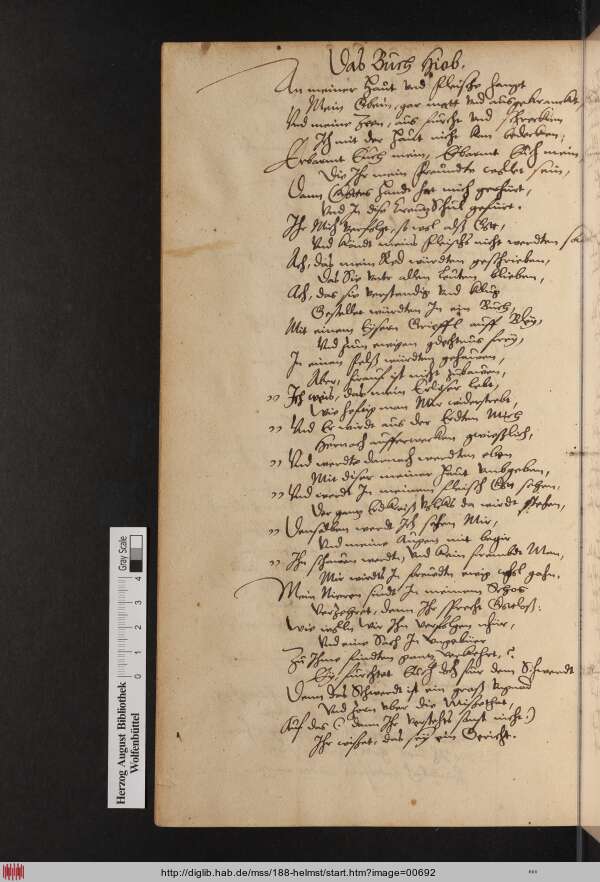 Das Buch Hiob.
An meiner Haut und Fleische hangt
Mein Gebein, gar matt und ausgekrancket,
Und meine Zeen, aus furcht und schrecken
Ich mit der Haut nicht kan bedecken,
Erbarmt Euch mein, Erbarmt Euch mein,
Die Ihr mein Freundte wollet sein,
Dann Gottes Handt hat mich gerhürt,
Und In dise Creutz Schul gefürt.
Ihr Mich verfolget so wol alß Gott,
Und Köndt meins Fleischs nicht werdten
Ach, das mein Red würdten geschrieben,
Das Sie unter allen Leuten blieben,
Ach, das sie verstendig und klug
Gestellet würdten In ein Buch,
Mit einem Eysern Grieffl auff Bley,
Und zum ewigen gedechtnus frey,
In einen Felß würdten gehauen,
Aber, Hierauf ist nicht zubauen,
" Ich weis, das mein Erlöser lebt,
Wie hefftig man Mir widerstrebt,
" Und Er wirdt aus der Erdten Mich
Hernach aufferwecken gwißlich,
" Und werdte darnach werdten eben
Mit diser meiner Haut umbgeben,
" Und werdt In meinem Fleisch Gott sehen,
Der gantz Erdkreiß da wirdt stehen,
" Denselben werdt Ich sehen Mir,
Und meine Augen mit begir
" Ihn schauen werdt, und kein frembdt Man,
Mir wirdts In freudten ewig wohl gahn.
Mein Nieren sindt In meinem Schos
Verzehret, dann Ihr sprecht Gottloß:
Wie wolln Wir Ihn verfolgen schir,
Und eine Sach In ungebür
Zu Ihme findten gantz verkehrt,?
Ey fürchtet Euch doch für dem Schwerdt
Denn das Schwerdt ist ein groß ungnad
Und Zorn uber die Missethat,
Auf das (: dann Ihr verstehts sonst nicht:)
Ihr wisset, das sey ein Gericht.
Herzog August Bibliothek
Wolfenbüttel
Gray Scale
0 1 2 3 4
http://diglib.hab.de/mss/188-helmst/start.htm?image=00692